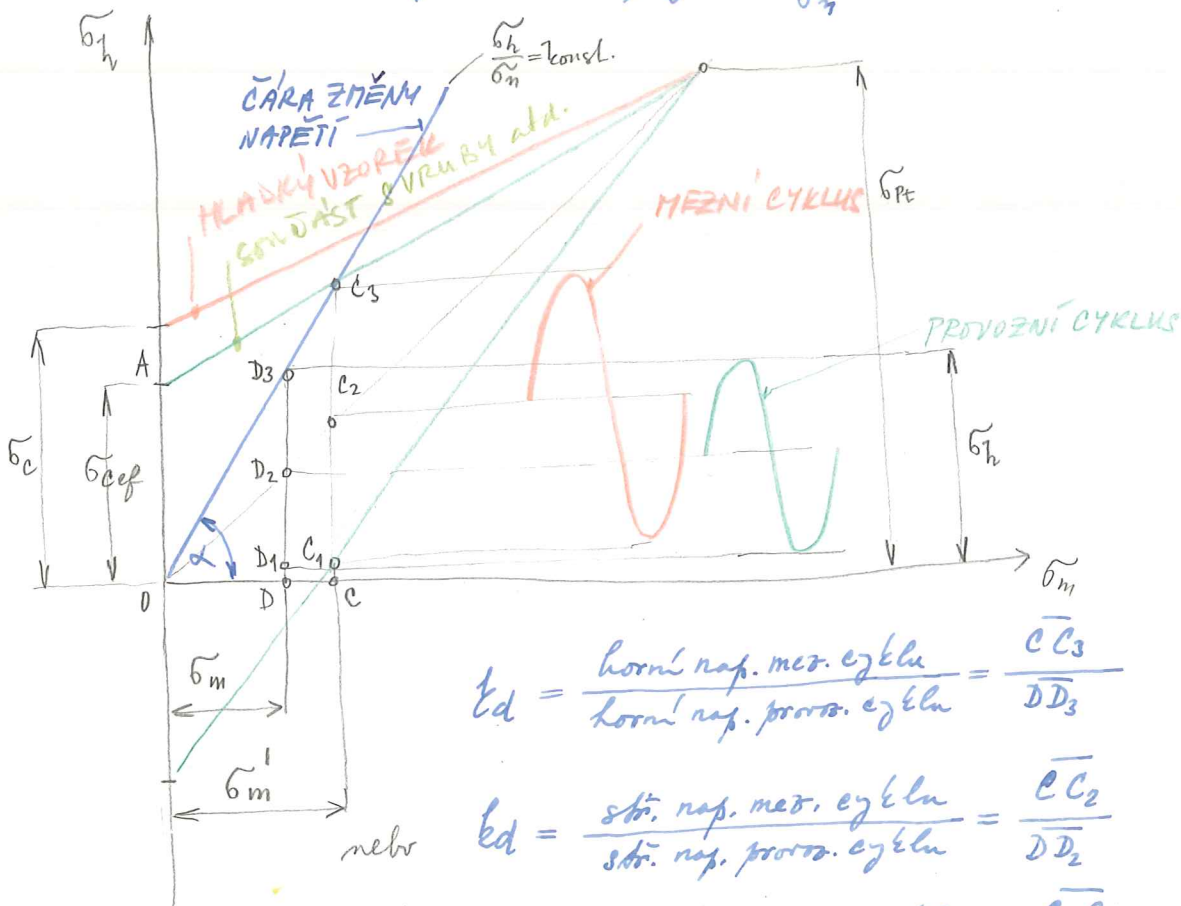 σh
σh/σn = konst.
ČÁRA ZMĚNY
NAPĚTÍ
HLADKÝ VZOREK
SOUČÁST S VRUBY atd.
MEZNÍ CYKLUS
σPt
C3
PROVOZNÍ CYKLUS
A
D3
C2
σc
σcef
D2
σh
α
D1
C1
0
D
C
σm
σm
kd = horní nap. mez. cyklu / horní nap. provoz. cyklu = CC3 / DD3
σm'
nebo
kd = stř. nap. mez. cyklu / stř. nap. provoz. cyklu = CC2 / DD2